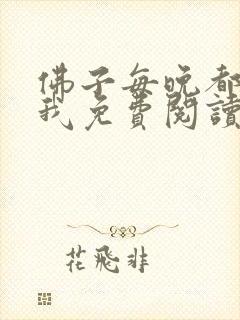 佛子每晚都
我免費閱讀
花飛非